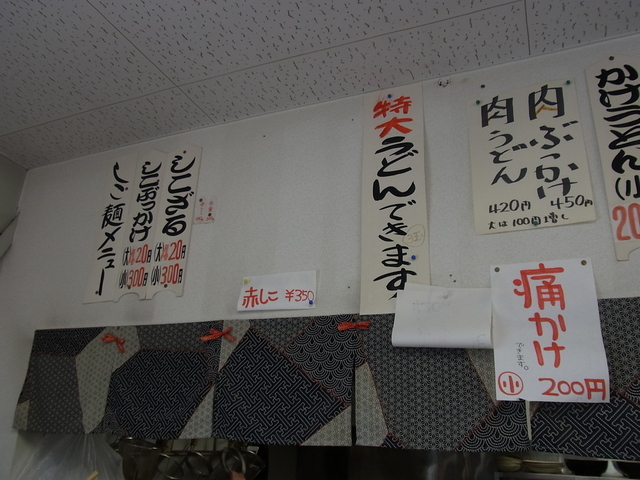 しこ麺メニュー
しこぶっかけ
(大)420円
(小)300円
しこざる
(大)420円
(小)300円
赤しこ ¥350
特大うどんできます
肉ぶっかけ
450円
肉うどん
420円
大は100円増し
痛かけ
できます。
小 200円
かけうどん(小)
20